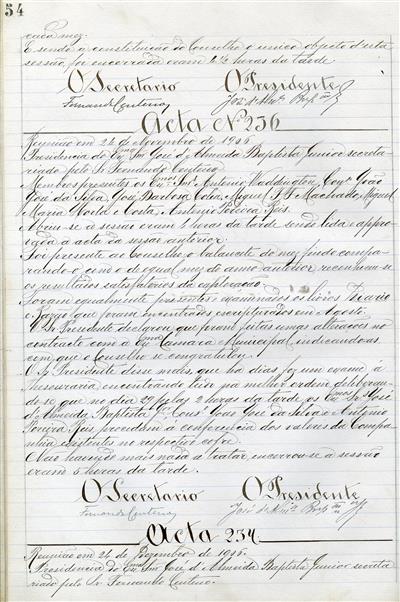 54
cada mez.
E sendo a constituição do Conselho o unico objecto d'esta
sessão, foi encerrada eram 2 1/2 horas da tarde.
O Secretario O Presidente
Fernando Centeno
Acta Nº 256
Reunião em 24 de Novembro de 1905.
Presidencia do Exmo Snr José d'Almeida Baptista Junior secreta-
riado pelo Sr Fernando Centeno
Membros presentes os Exmos Snrs Antonio Waddington, Consº João
José da Silva, José Barbosa Colen, Miguel Machado, Miguel
Maria Horta e Costa, Antonio Pereira Reis.
Abriu-se a sessão eram horas da tarde sendo lida e appro-
vada a acta da sessão anterior.
Foi presente ao Conselho o balancete do mez findo compa-
rando-o com o de egual mez do anno anterior reconheceu-se
os resultados satisfatorios da exploração.
Foram egualmente presentes e examinados os livros Diario
e Razão que foram encontrados escripturados em Agosto.
O Sr Presidente declarou que foram feitas umas alterações no
contracto com a Exma Camara Municipal indicando-as
com que o Conselho se congratulou.
O Sr Presidente disse mais, que ha dias foi um exame á
thesouraria encontrando tudo na melhor ordem, deliberan-
do-se que no dia 29 pelas 2 horas da tarde os Exmos Srs José
d'Almeida Baptista Jr Consº João José da Silva e Antonio
Pereira Reis procedam á conferencia dos valores da Compa-
nhia existentes no respectivo cofre.
Não havendo mais nada a tratar, encerrou-se a sessão
eram 5 horas da tarde.
O Secretario O Presidente
Fernando Centeno
Acta 257
Reunião em 26 de Dezembro de 1905.
Presidencia do Exmo Snr José d'Almeida Baptista Junior secreta-
riado pelo Sr Fernando Centeno.